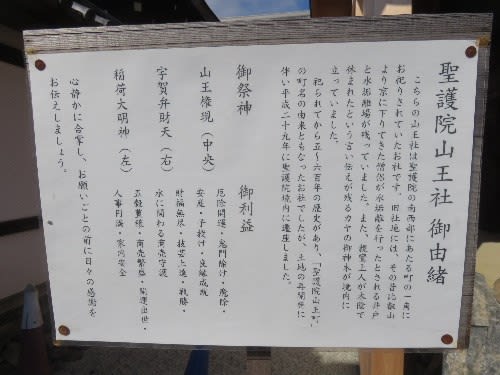 聖護院山王社 御由緒
こちらの山王社は聖護院の南西部にあたる町の一角に
お祀りされていたお社です。旧社地には、その昔比叡山
より京に下りてきた僧侶が水垢離を行ったとされる井戸
と水垢離場が残っていました。また、親鸞上人が木陰で
休まれたという言い伝えが残るカヤの御神木が境内に
立っていました。
祀られてから五〜六百年の歴史があり、「聖護院山王町」
の町名の由来ともなったお社でしたが、土地の再開発に
伴い平成二十九年に聖護院境内に遷座しました。
御祭神 御利益
山王権現(中央) 厄除開運・鬼門除け・魔除・
安産・子授け・良縁成就
宇賀弁財天(右) 財福無尽・技芸上達・戦勝・
水に関わる商売守護
稲荷大明神(左) 五穀豊穣・商売繁盛・開運出世・
人事円満・家内安全
心静かに合掌し、お願いごとの前に日々の感謝を
お伝えしましょう。